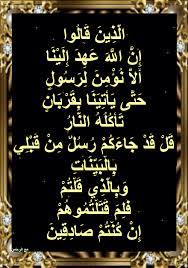 الَّذِينَ قَالُوا
إِنَّ اللَّهَ عَهِدَ إِلَيْنَا
أَلَّا نُؤْمِنَ لِرَسُولٍ
حَتَّى يَأْتِيَنَا بِقُرْبَانٍ
تَأْكُلُهُ النَّارُ
قُلْ قَدْ جَاءَكُمْ رُسُلٌ مِنْ قَبْلِي
بِالْبَيِّنَاتِ
وَبِالَّذِي قُلْتُمْ
فَلِمَ قَتَلْتُمُوهُمْ
إِنْ كُنْتُمْ صَادِقِينَ